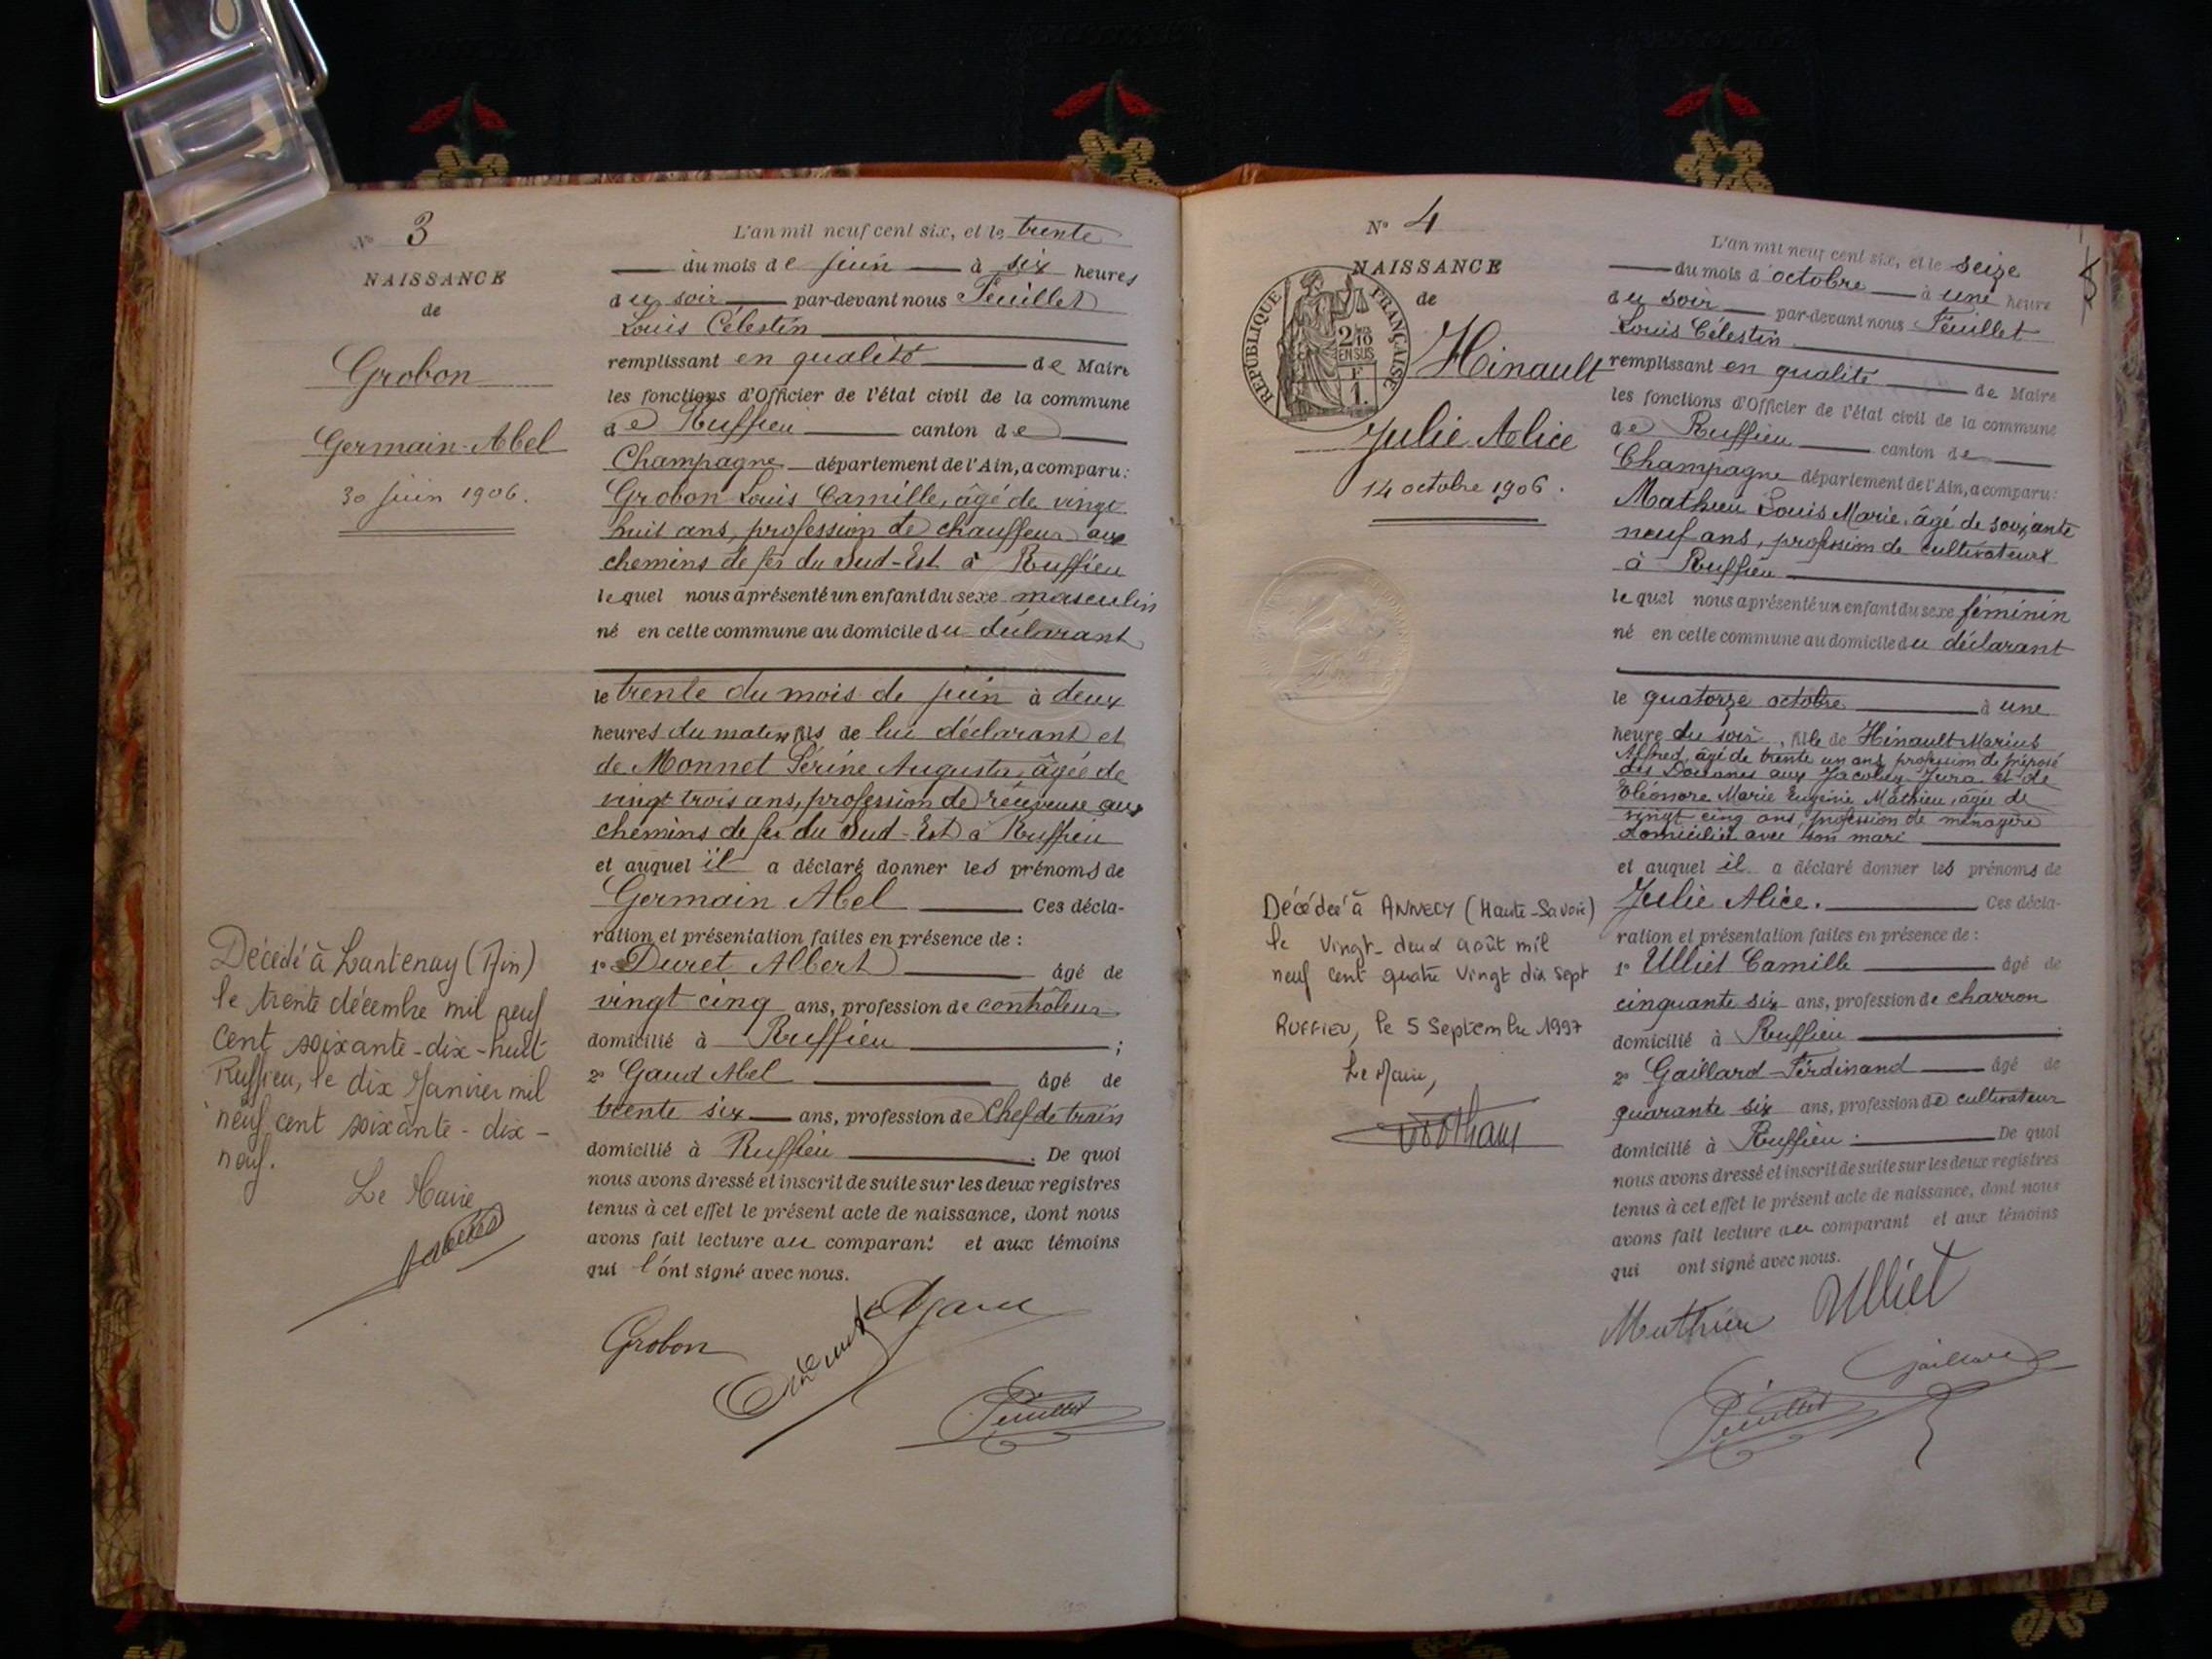 N° 3
NAISSANCE
de
Grobon
Germain-Abel
30 juin 1906.
Décédé à Lantenay (Ain)
le trente décembre mil neuf
cent soixante-dix-huit
Ruffieu, le dix Janvier mil
neuf cent soixante-dix-
neuf.
Le Maire
L'an mil neuf cent six, et le trente
du mois de juin à six heures
du soir par-devant nous Feuillet
Louis Célestin
remplissant en qualité de Maire
les fonctions d'Officier de l'état civil de la commune
de Ruffieu canton de
Champagne département de l'Ain, a comparu:
Grobon Louis Camille, âgé de vingt
huit ans, profession de chauffeur aux
chemins de fer du Sud-Est à Ruffieu
lequel nous a présenté un enfant du sexe masculin
né en cette commune au domicile du déclarant
le trente du mois de juin à deux
heures du matin fils de lui déclarant et
de Monnet Sérine Augusta, âgée de
vingt trois ans, profession de receveuse aux
chemins de fer du Sud-Est à Ruffieu
et auquel il a déclaré donner les prénoms de
Germain Abel Ces décla-
ration et présentation faites en présence de :
1° Duret Albert âgé de
vingt cinq ans, profession de contrôleur
domicilié à Ruffieu ;
2° Gaud Abel âgé de
trente six ans, profession de Chef de train
domicilié à Ruffieu . De quoi
nous avons dressé et inscrit de suite sur les deux registres
tenus à cet effet le présent acte de naissance, dont nous
avons fait lecture au comparant et aux témoins
qui l'ont signé avec nous.
Grobon
Feuillet
N° 4
NAISSANCE
de
REPUBLIQUE FRANÇAISE
2/10
EN SUS
F
1.
Hinault
Julie Alice
14 octobre 1906.
Décédée à ANNECY (Haute-Savoie)
le vingt-deux août mil
neuf cent quatre vingt dix sept
RUFFIEU, le 5 Septembre 1997
Le Maire,
L'an mil neuf cent six, et le seize
du mois d'octobre à une heure
du soir par-devant nous Feuillet
Louis Célestin
remplissant en qualité de Maire
les fonctions d'Officier de l'état civil de la commune
de Ruffieu canton de
Champagne département de l'Ain, a comparu:
Mathieu Louis Marie, âgé de soixante
neuf ans, profession de cultivateur
à Ruffieu
lequel nous a présenté un enfant du sexe féminin
né en cette commune au domicile du déclarant
le quatorze octobre à une
heure du soir, fille de Hinault Marius
Alfred, âgé de trente un ans, profession de préposé
des Douanes aux Jacobey Jura et de
Eléonore Marie Eugénie Mathieu, âgée de
vingt cinq ans, profession de ménagère
domiciliée avec son mari
et auquel il a déclaré donner les prénoms de
Julie Alice. Ces décla-
ration et présentation faites en présence de :
1° Ulliet Camille âgé de
cinquante six ans, profession de charron
domicilié à Ruffieu ;
2° Gaillard Ferdinand âgé de
quarante six ans, profession de cultivateur
domicilié à Ruffieu. De quoi
nous avons dressé et inscrit de suite sur les deux registres
tenus à cet effet le présent acte de naissance, dont nous
avons fait lecture au comparant et aux témoins
qui ont signé avec nous.
Mathieu Ulliet
Gaillard
Feuillet